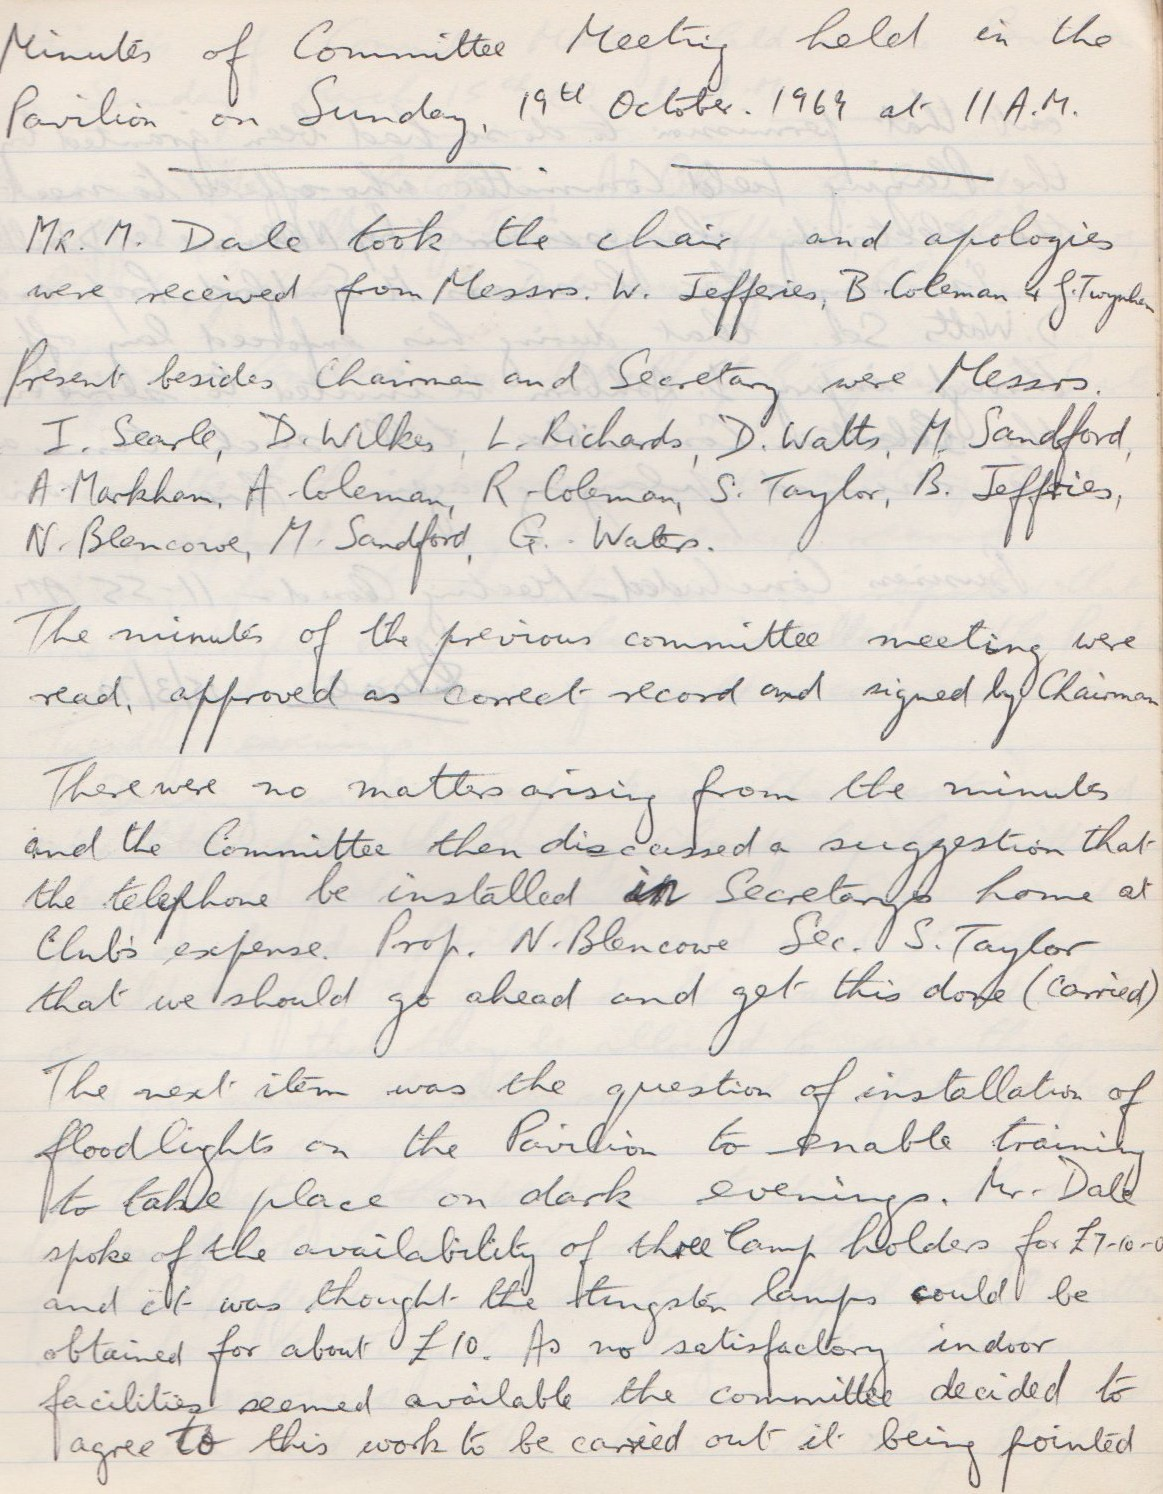 Minutes of Committee Meeting held in the
Pavilion on Sunday, 19th October. 1969 at 11 A.M.
Mr. M. Dale took the chair and apologies
were received from Messrs. W. Jefferies, B. Coleman & G. Twynham
Present besides Chairman and Secretary were Messrs.
I. Searle, D. Wilkes, L. Richards, D. Watts, M. Sandford,
A. Markham, A. Coleman, R. Coleman, S. Taylor, B. Jefferies,
N. Blencowe, M. Sandford, G. Waters.
The minutes of the previous committee meeting were
read, approved as correct record and signed by Chairman
There were no matters arising from the minutes
and the Committee then discussed a suggestion that
the telephone be installed in Secretarys home at
Club's expense. Prop. N. Blencowe Sec. S. Taylor
that we should go ahead and get this done (Carried)
The next item was the question of installation of
floodlights on the Pavilion to enable training
to take place on dark evenings. Mr. Dale
spoke of the availability of three lamp holders for £7-10-0
and it was thought the tungsten lamps could be
obtained for about £10. As no satisfactory indoor
facilities seemed available the committee decided to
agree to this work to be carried out it being pointed